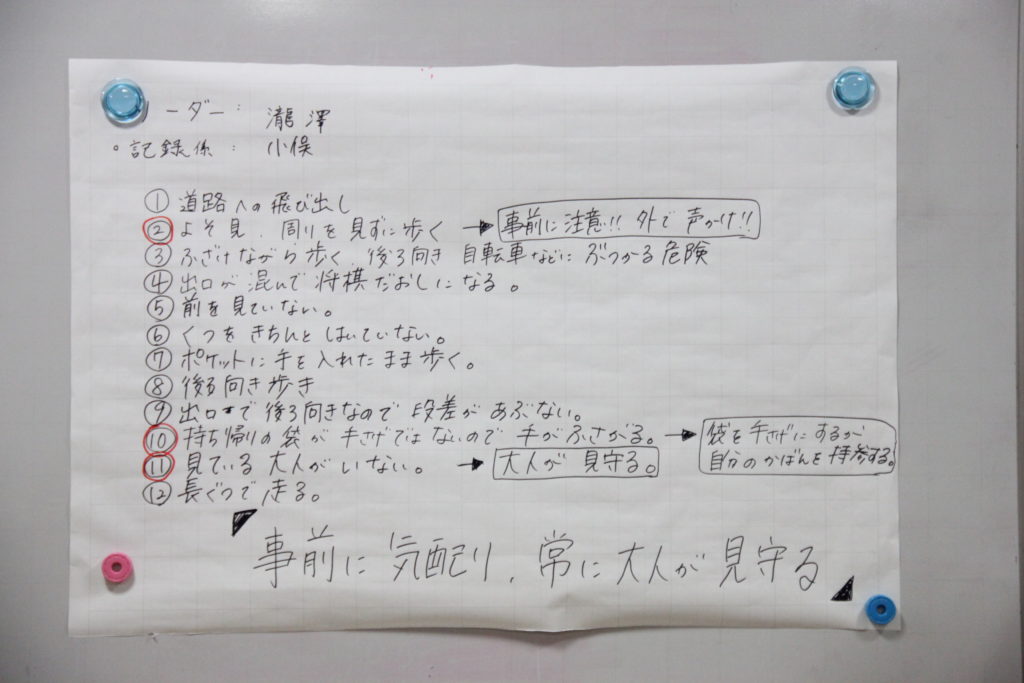 ーダー： 瀧澤
・記録係： 小俣
① 道路への飛び出し
② よそ見、周りを見ずに歩く → 事前に注意!! 外で声かけ!!
③ ふざけながら歩く、後ろ向き 自転車などにぶつかる危険
④ 出口が混んで将棋だおしになる。
⑤ 前を見ていない。
⑥ くつをきちんとはいていない。
⑦ ポケットに手を入れたまま歩く。
⑧ 後ろ向き歩き
⑨ 出口で後ろ向きなので段差があぶない。
⑩ 持ち帰りの袋が手さげではないので手がふさがる。 → 袋を手さげにするか
自分のかばんを持参する。
⑪ 見ている大人がいない。 → 大人が見守る。
⑫ 長ぐつで走る。
事前に気配り、常に大人が見守る